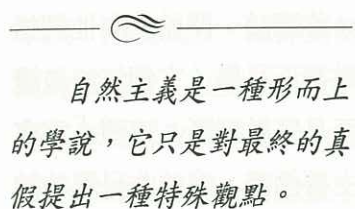 自然主義是一種形而上
的學說，它只是對最終的真
假提出一種特殊觀點。